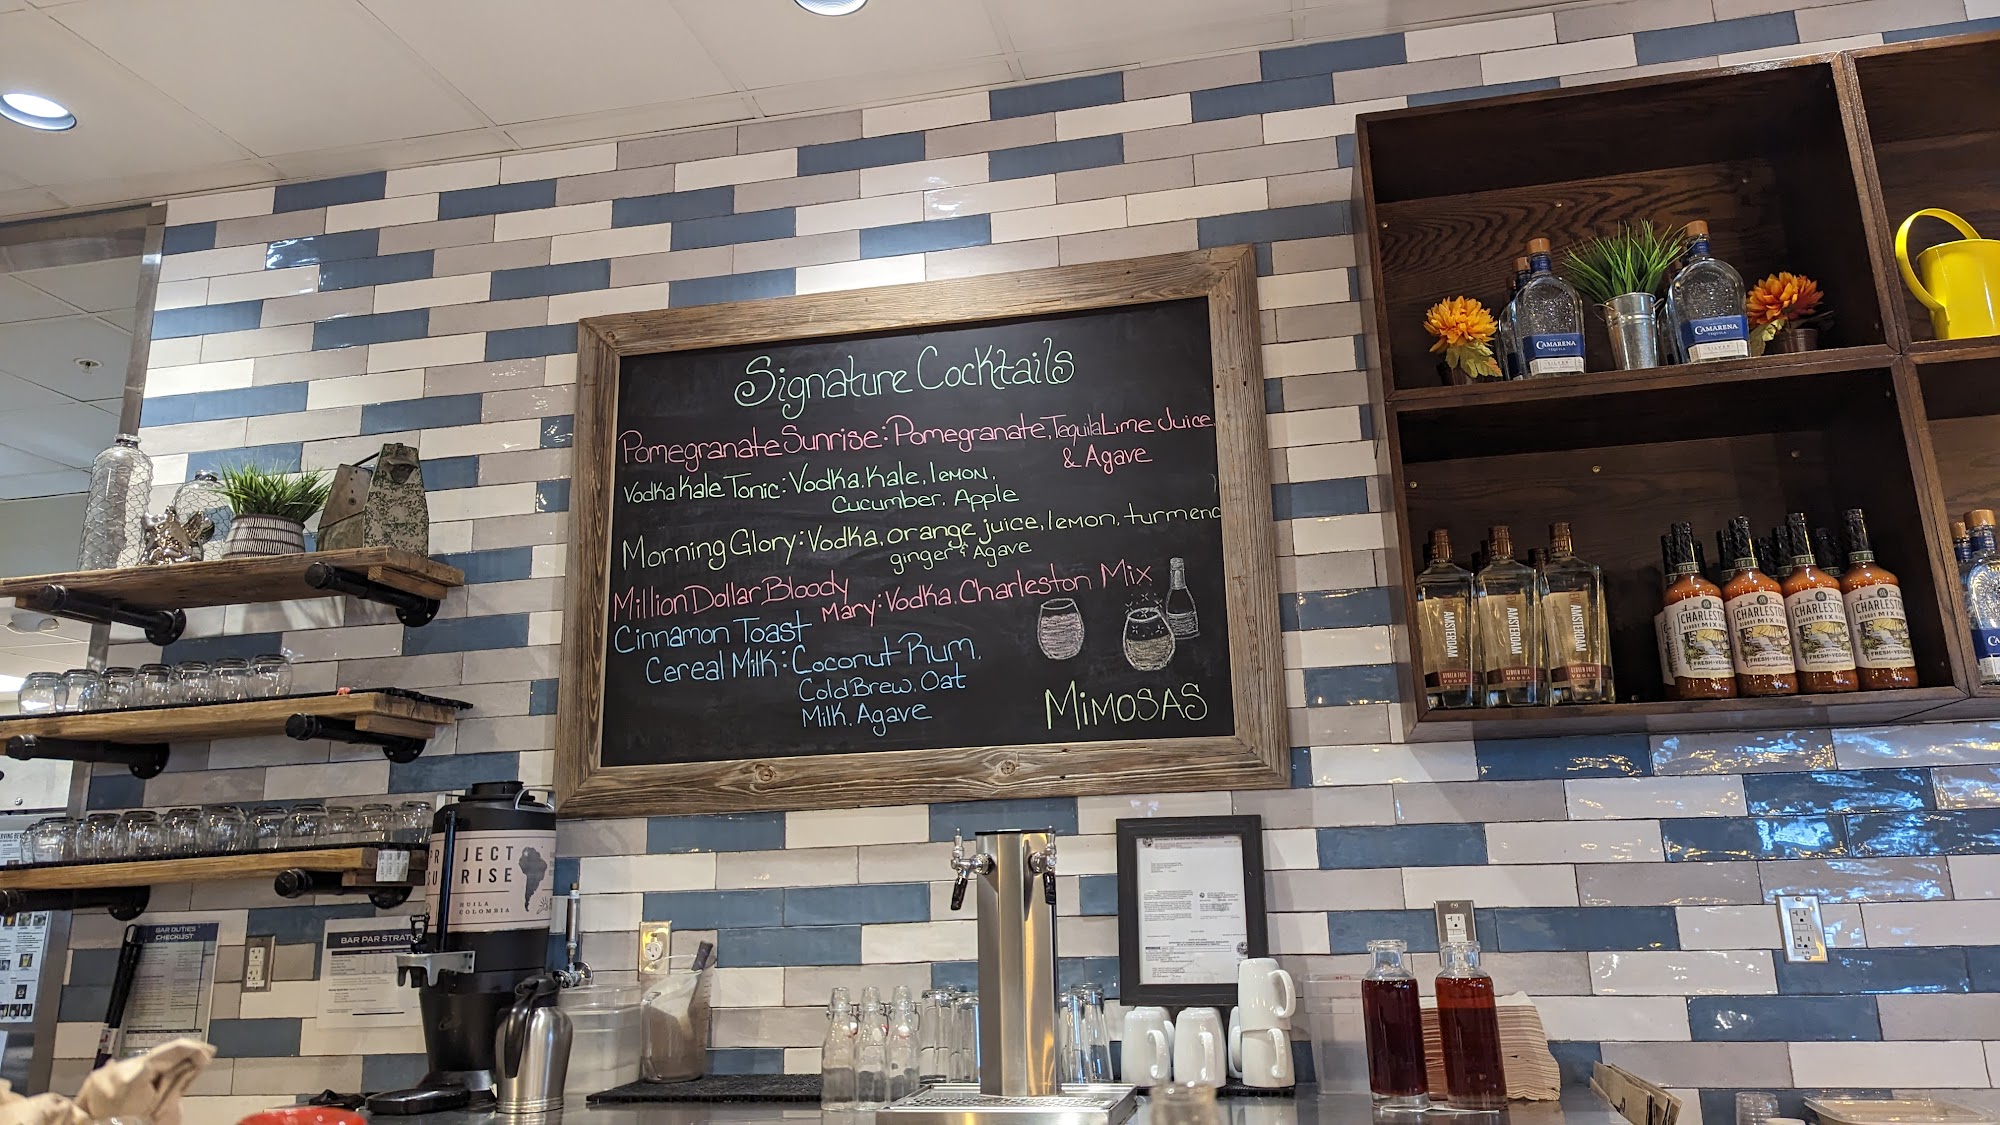 Signature Cocktails
Pomegranate Sunrise: Pomegranate, Tequila Lime Juice,
& Agave
Vodka Kale Tonic: Vodka, Kale, lemon,
Cucumber, Apple
Morning Glory: Vodka, orange juice, lemon, turmeric
ginger & Agave
Million Dollar Bloody
Mary: Vodka, Charleston Mix
Cinnamon Toast
Cereal Milk: Coconut Rum,
Cold Brew, Oat
Milk, Agave
MIMOSAS
CAMARENA
TEQUILA
SILVER
CAMARENA
TEQUILA
SILVER
AMSTERDAM
VODKA
AMSTERDAM
VODKA
AMSTERDAM
VODKA
CHARLESTON
BLOODY MIX
FRESH & VEGGIE
CHARLESTON
BLOODY MIX
FRESH & VEGGIE
CHARLESTON
BLOODY MIX
FRESH & VEGGIE
CHARLESTON
BLOODY MIX
FRESH & VEGGIE
JECT
RISE
HUILA
COLOMBIA
BAR DUTIES
CHECKLIST
BAR PAR STRATE